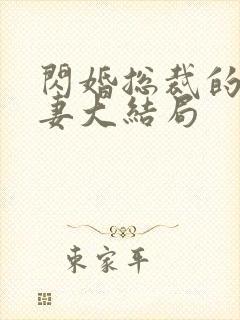 閃婚総裁的
妻大結局
東家平